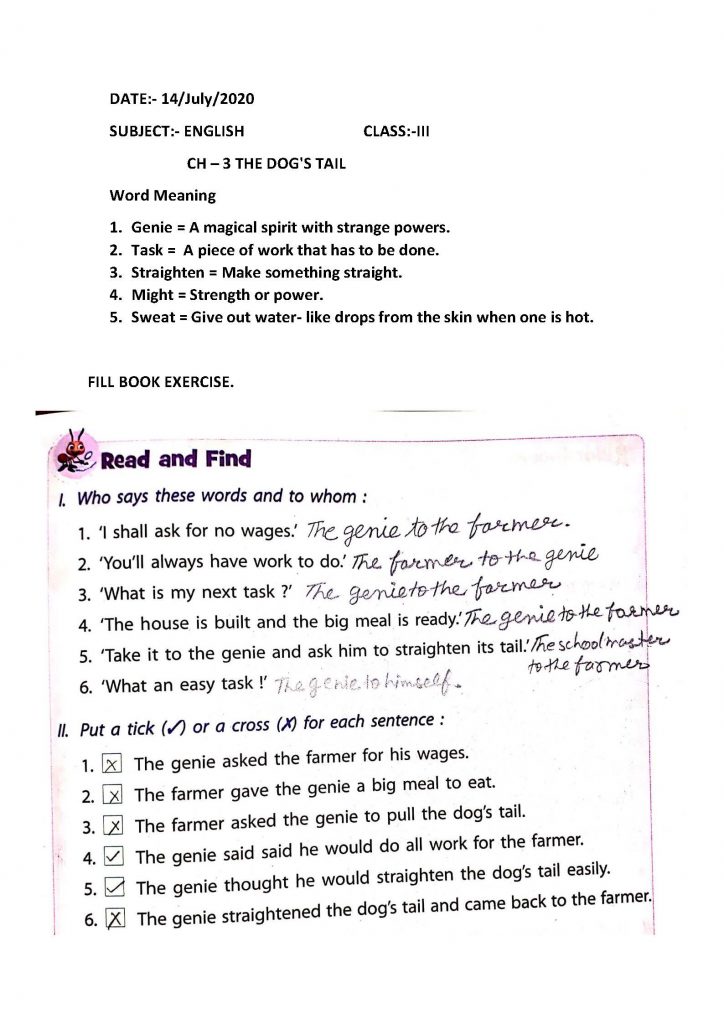 DATE:- 14/July/2020
SUBJECT:- ENGLISH CLASS:-III
CH – 3 THE DOG'S TAIL
Word Meaning
1. Genie = A magical spirit with strange powers.
2. Task = A piece of work that has to be done.
3. Straighten = Make something straight.
4. Might = Strength or power.
5. Sweat = Give out water- like drops from the skin when one is hot.
FILL BOOK EXERCISE.
Read and Find
I. Who says these words and to whom :
1. 'I shall ask for no wages.' The genie to the farmer.
2. 'You'll always have work to do.' The farmer to the genie
3. 'What is my next task ?' The genie to the farmer
4. 'The house is built and the big meal is ready.' The genie to the farmer
5. 'Take it to the genie and ask him to straighten its tail.' The schoolmaster
to the farmer
6. 'What an easy task !' The genie to himself.
II. Put a tick (✓) or a cross (✗) for each sentence :
1. ☒ The genie asked the farmer for his wages.
2. ☒ The farmer gave the genie a big meal to eat.
3. ☒ The farmer asked the genie to pull the dog's tail.
4. ☑ The genie said said he would do all work for the farmer.
5. ☑ The genie thought he would straighten the dog's tail easily.
6. ☒ The genie straightened the dog's tail and came back to the farmer.